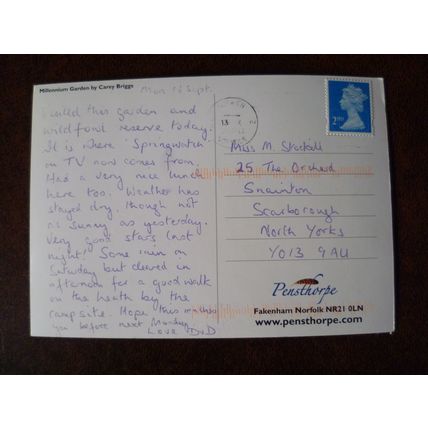 Millennium Garden by Carey Briggs
Mon 16 Sept.
Visited this garden and
wildfowl reserve today.
It is where 'Springwatch'
on TV now comes from.
Had a very nice lunch
here too. Weather has
stayed dry, though not
as sunny as yesterday.
Very good stars last
night! Some rain on
Saturday but cleared in
afternoon for a good walk
on the heath by the
campsite. Hope this reaches
you before next Monday
Love D & D
2ND
Miss M. Stockill
25 The Orchard
Snainton
Scarborough
North Yorks
YO13 9AU
Pensthorpe
Fakenham Norfolk NR21 0LN
www.pensthorpe.com